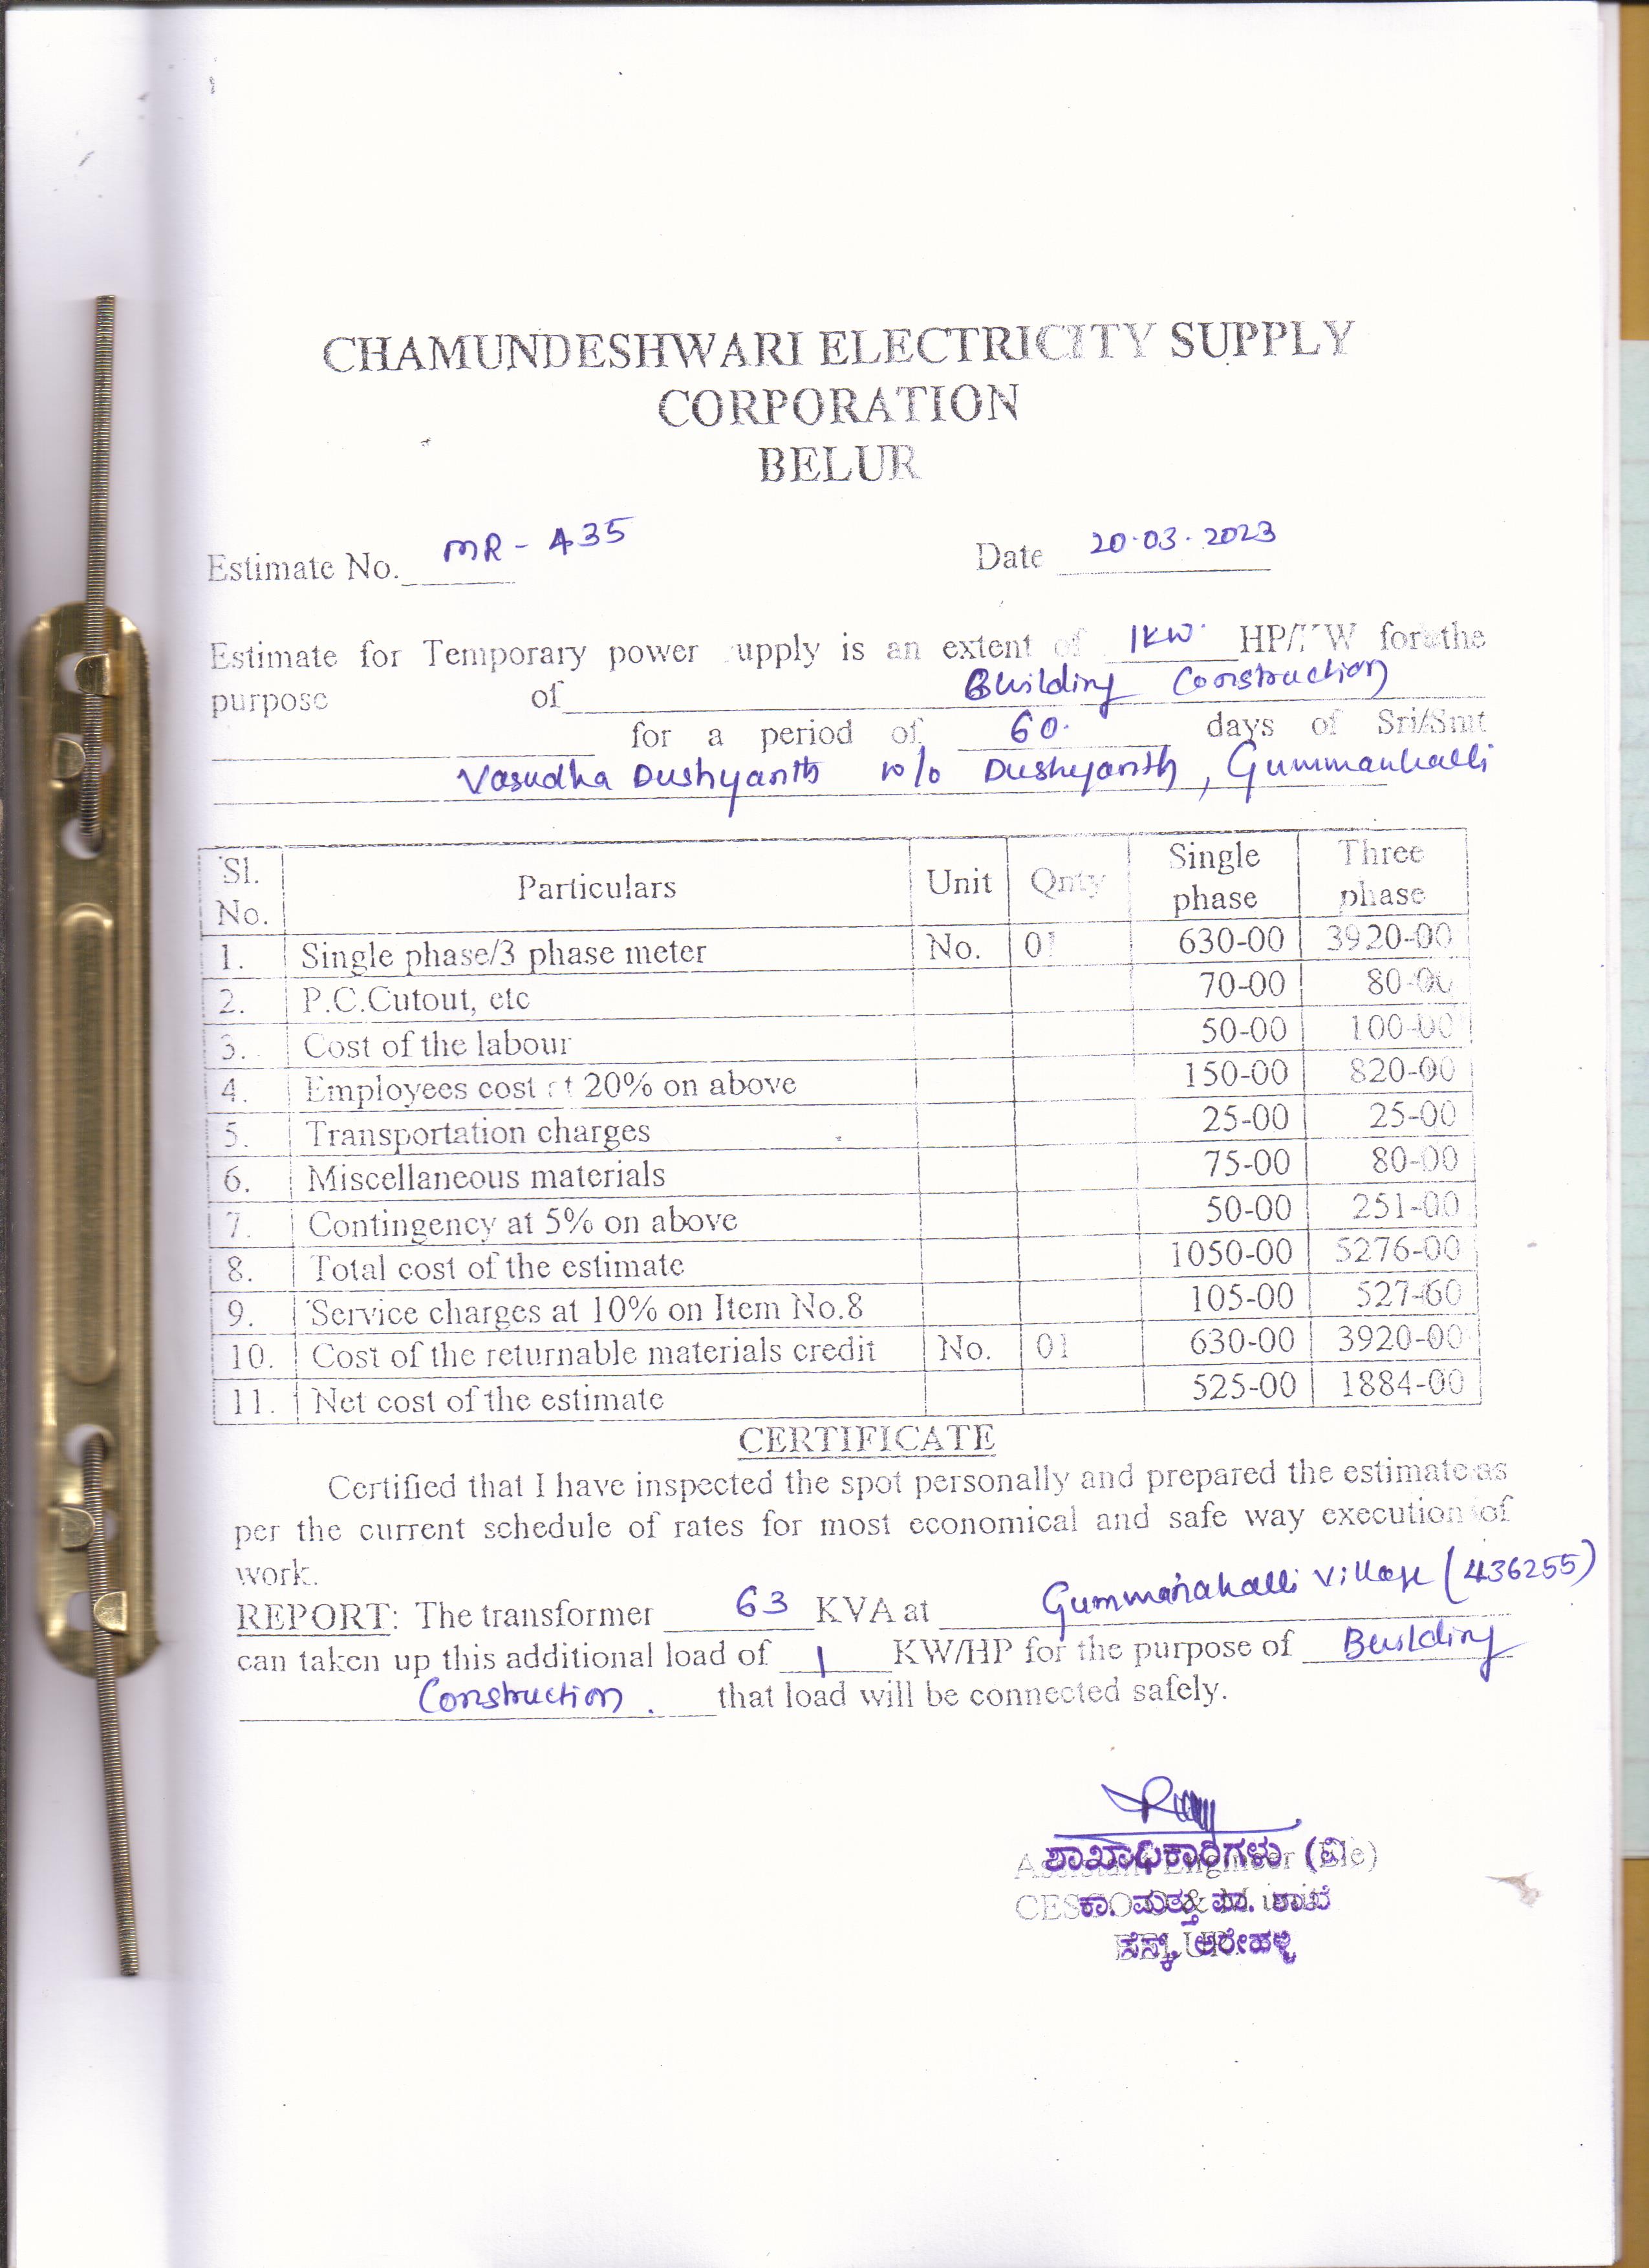 CHAMUNDESHWARI ELECTRICITY SUPPLY
CORPORATION
BELUR
Estimate No. MR - 435 Date 20.03.2023
Estimate for Temporary power supply is an extent of 1KW. HP/KW for the
purpose of Building Construction
for a period of 60. days of Sri/Smt
Vasudha Dushyanth w/o Dushyanth, Gummanhalli
Sl. No. Particulars Unit Qnty Single phase Three phase
1. Single phase/3 phase meter No. 01 630-00 3920-00
2. P.C.Cutout, etc 70-00 80-00
3. Cost of the labour 50-00 100-00
4. Employees cost at 20% on above 150-00 820-00
5. Transportation charges 25-00 25-00
6. Miscellaneous materials 75-00 80-00
7. Contingency at 5% on above 50-00 251-00
8. Total cost of the estimate 1050-00 5276-00
9. Service charges at 10% on Item No.8 105-00 527-60
10. Cost of the returnable materials credit No. 01 630-00 3920-00
11. Net cost of the estimate 525-00 1884-00
CERTIFICATE
Certified that I have inspected the spot personally and prepared the estimate as
per the current schedule of rates for most economical and safe way execution of
work.
REPORT: The transformer 63 KVA at Gummanahalli Village (436255)
can taken up this additional load of 1 KW/HP for the purpose of Building
Construction. that load will be connected safely.
ಶಾಖಾಧಿಕಾರಿಗಳು (ವಿ
ಕಾ. ಮತ್ತು ಪಾ. ಶಾಖೆ
ಸೆಸ್ಕ್, ಅರೇಹಳ್ಳಿ